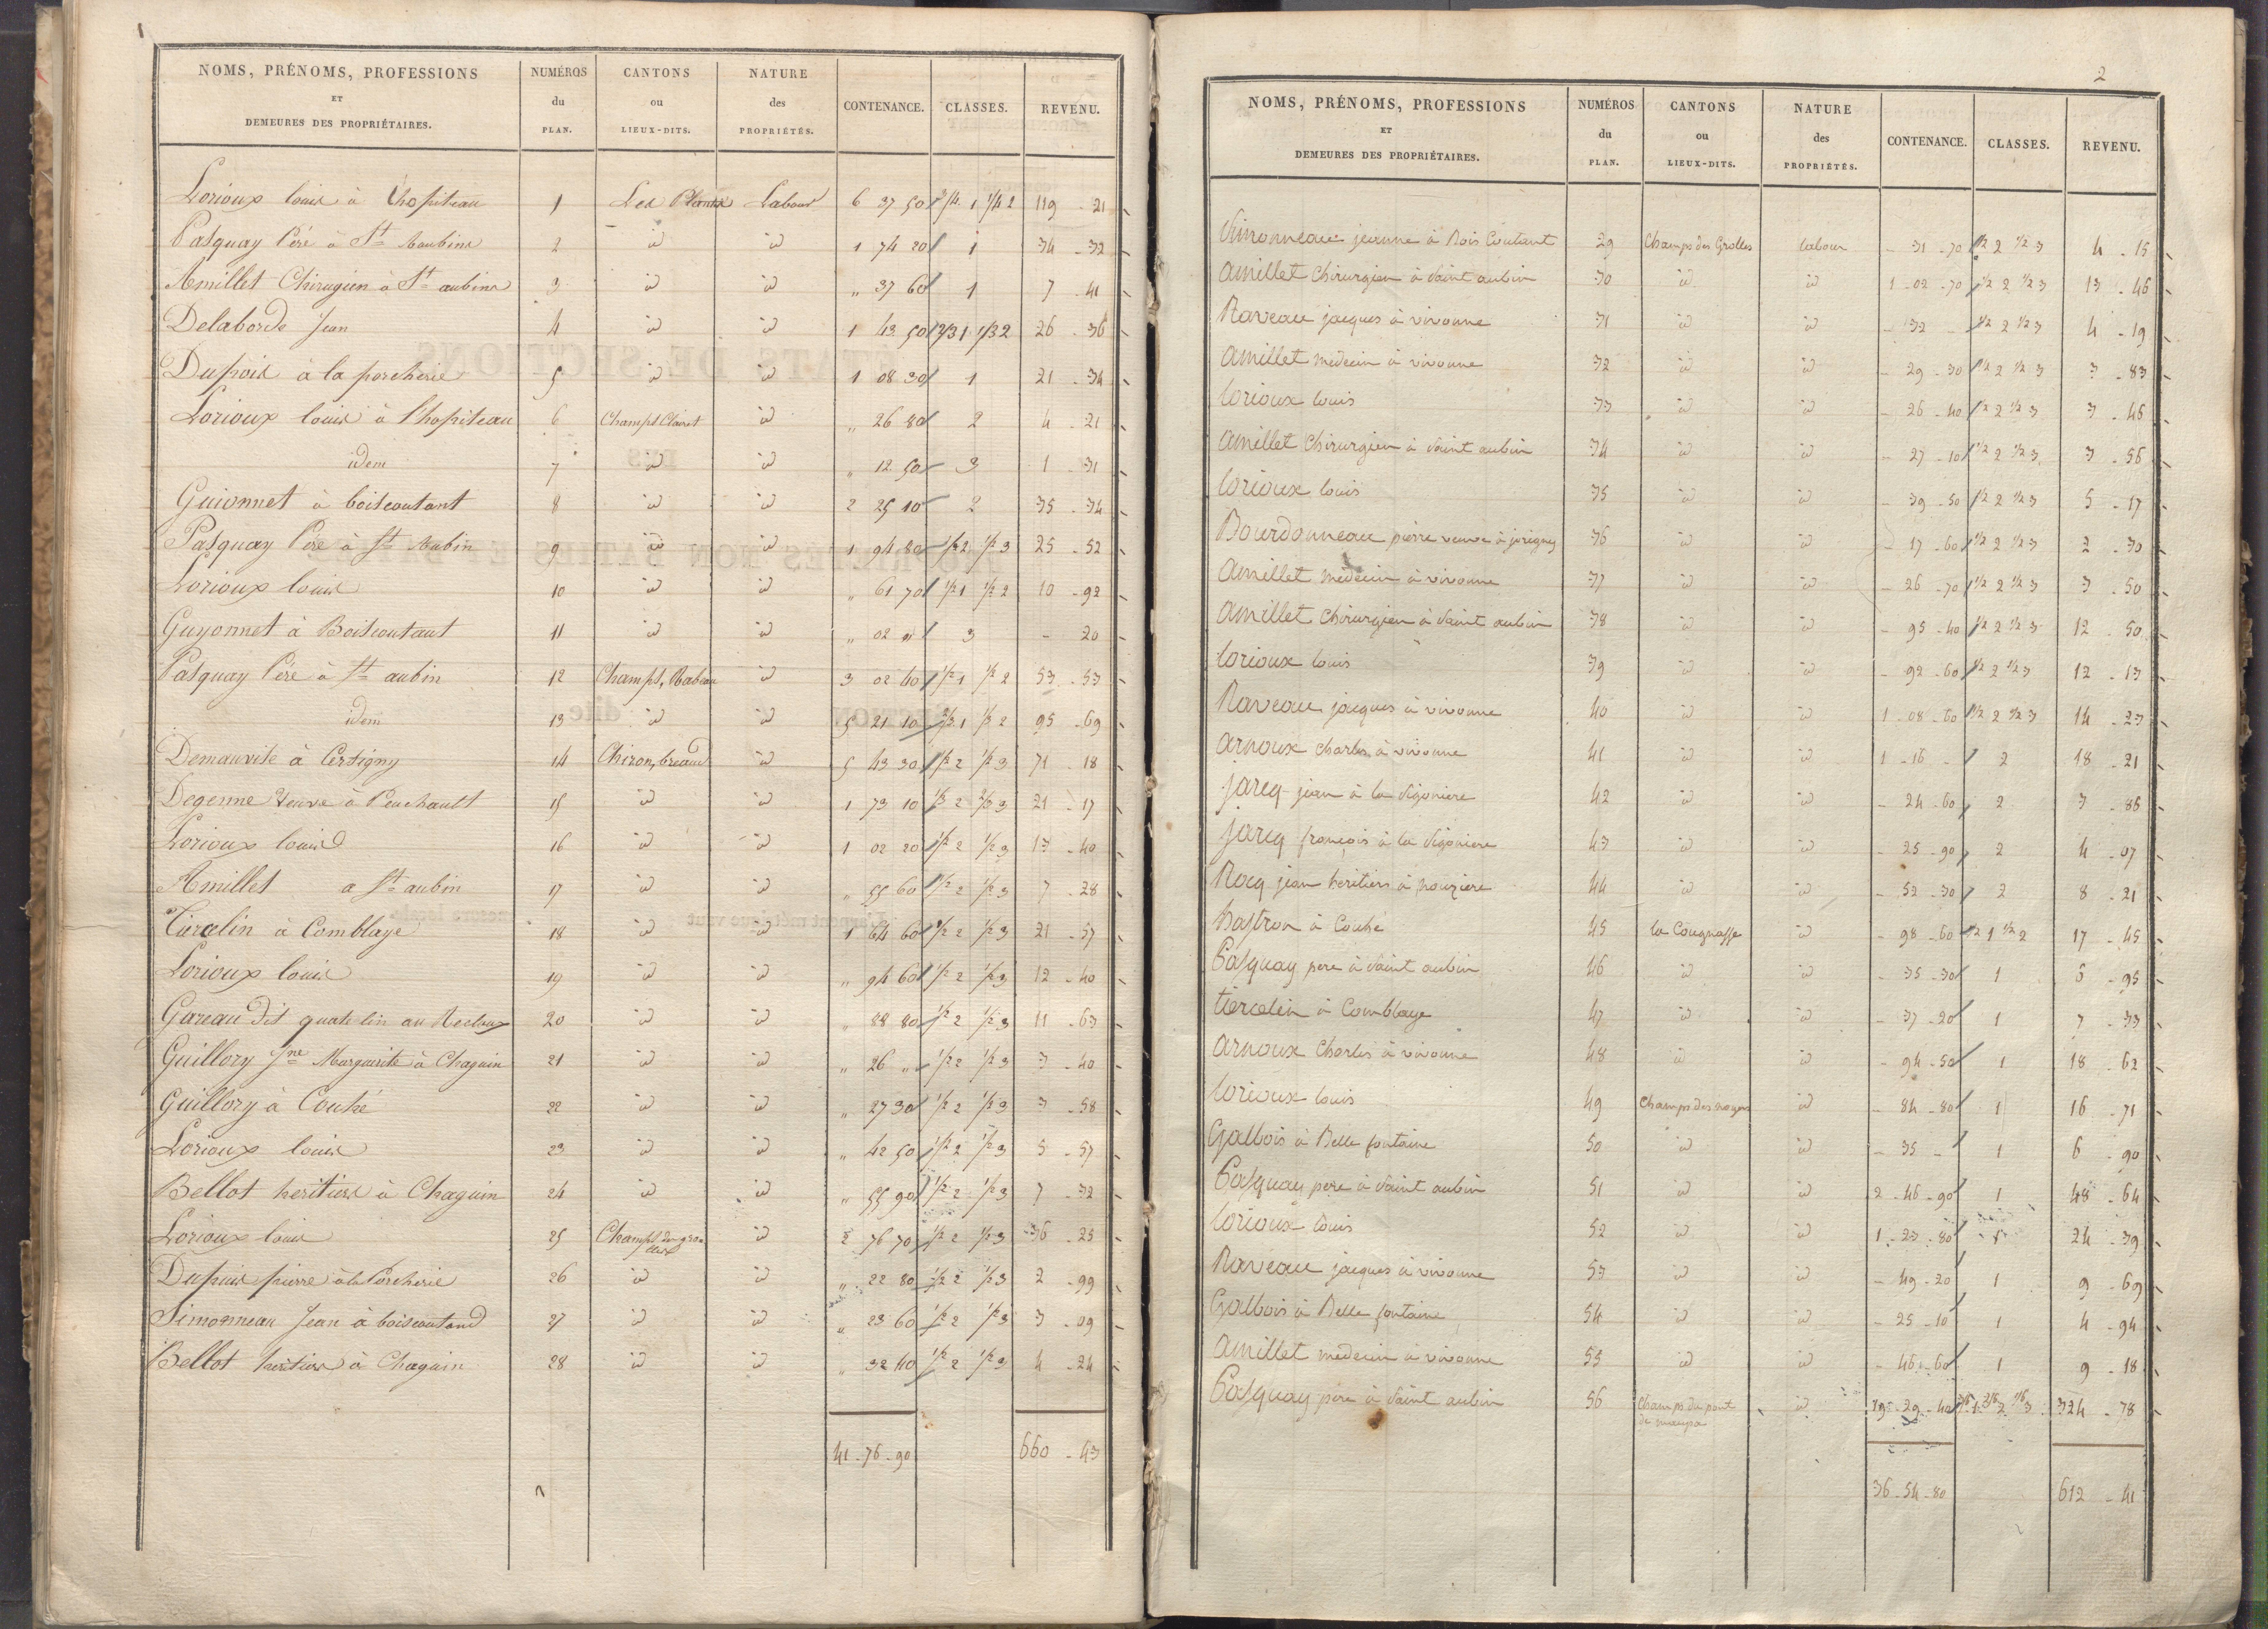 NOMS, PRÉNOMS, PROFESSIONS ET DEMEURES DES PROPRIÉTAIRES. NUMÉROS du PLAN. CANTONS ou LIEUX-DITS. NATURE des PROPRIÉTÉS. CONTENANCE. CLASSES. REVENU.
Lorioux louis à lhopiteau 1 Les Plantes Labour 6 37 50 3/4 1 1/4 2 119 - 21
Pasquay Péré à St Aaubins 2 id id 1 74 20 1 34 - 32
Amillet Chirugien à St aubins 3 id id " 37 60 1 7 - 41
Delaborde Jean 4 id id 1 43 50 2/3 1 1/3 2 26 - 36
Dupois à la porcherie 5 id id 1 08 30 1 21 - 34
Lorioux louis à lhopiteau 6 Champs Clairet id " 26 80 2 4 - 21
idem 7 id id " 12 50 3 1 - 31
Guionnet à boiscoutant 8 id id 2 25 10 2 35 - 34
Pasquay Péré à St Aubin 9 id id 1 94 80 1/2 2 1/2 3 25 - 52
Lorioux louis 10 id id " 61 70 1/2 1 1/2 2 10 - 92
Guyonnet à Boiscoutant 11 id id " 02 " 3 - 20
Pasquay Péré à St aubin 12 Champs, Rabeau id 3 02 40 1/2 1 1/2 2 53 - 53
idem 13 id id 5 21 10 2/3 1 1/3 2 95 - 69
Demauvise à Cersigny 14 Chiron, breaud id 5 43 30 1/2 2 1/2 3 71 - 18
Degenne Veuve à Peuchault 15 id id 1 73 10 1/3 2 2/3 3 21 - 17
Lorioux louis 16 id id 1 02 20 1/2 2 1/2 3 13 - 40
Amillet a St aubin 17 id id " 55 60 1/2 2 1/2 3 7 - 28
Tiercelin à Comblaye 18 id id 1 64 60 1/2 2 1/2 3 21 - 57
Lorioux louis 19 id id " 94 60 1/2 2 1/2 3 12 - 40
Gareau dit quatelin au Recloux 20 id id " 88 80 1/2 2 1/2 3 11 - 63
Guillory Jne Marguerite à Chaguin 21 id id " 26 " 1/2 2 1/2 3 3 - 40
Guillory à Couhé 22 id id " 27 30 1/2 2 1/2 3 3 - 58
Lorioux louis 23 id id " 42 50 1/2 2 1/2 3 5 - 57
Bellot heritiers à Chaguin 24 id id " 55 90 1/2 2 1/2 3 7 - 32
Lorioux louis 25 Champs des grolles id 2 76 70 1/2 2 1/2 3 36 - 25
Dupuis pierre à la Porcherie 26 id id " 22 80 1/2 2 1/2 3 2 - 99
Simonneau Jean à boiscoutand 27 id id " 23 60 1/2 2 1/2 3 3 - 09
Bellot heritiers à Chaguin 28 id id " 32 40 1/2 2 1/2 3 4 - 24
41 - 76 - 90 660 - 43
2
NOMS, PRÉNOMS, PROFESSIONS ET DEMEURES DES PROPRIÉTAIRES. NUMÉROS du PLAN. CANTONS ou LIEUX-DITS. NATURE des PROPRIÉTÉS. CONTENANCE. CLASSES. REVENU.
Simonneau jeanne à Bois Coutant 29 Champs des Grolles labour - 31 - 70 1/2 2 1/2 3 4 - 15
amillet chirurgien à Saint aubin 30 id id 1 - 02 - 70 1/2 2 1/2 3 13 - 46
Raveau jacques à vivonne 31 id id - 32 - 1/2 2 1/2 3 4 - 19
amillet medecin à vivonne 32 id id - 29 - 30 1/2 2 1/2 3 3 - 83
lorioux louis 33 id id - 26 - 40 1/2 2 1/2 3 3 - 46
amillet chirurgien à Saint aubin 34 id id - 27 - 10 1/2 2 1/2 3 3 - 56
lorioux louis 35 id id - 39 - 50 1/2 2 1/2 3 5 - 17
Bourdonneau pierre veuve à jorigny 36 id id - 17 - 60 1/2 2 1/2 3 2 - 30
amillet medecin à vivonne 37 id id - 26 - 70 1/2 2 1/2 3 3 - 50
amillet chirurgien à Saint aubin 38 id id - 95 - 40 1/2 2 1/2 3 12 - 50
lorioux louis 39 id id - 92 - 60 1/2 2 1/2 3 12 - 13
Raveau jacques à vivonne 40 id id 1 - 08 - 60 1/2 2 1/2 3 14 - 23
arnoux charles à vivonne 41 id id 1 - 16 - 2 18 - 21
jarcq jean à la Sigoniere 42 id id - 24 - 60 2 3 - 86
jarcq françois à la Sigoniere 43 id id - 25 - 90 2 4 - 07
Rocq jean heritiers à nouziere 44 id id - 52 - 30 2 8 - 21
bastron à Couhé 45 la Cougnasse id - 98 - 60 1/2 1 1/2 2 17 - 45
Pasquay pere à Saint aubin 46 id id - 35 - 30 1 6 - 95
tiercelin à Comblaye 47 id id - 37 - 20 1 7 - 33
arnoux Charles à vivonne 48 id id - 94 - 50 1 18 - 62
lorioux louis 49 Champs des noyers id - 84 - 80 1 16 - 71
Galbois à Belle fontaine 50 id id - 35 - 1 6 - 90
Pasquay pere à Saint aubin 51 id id 2 - 46 - 90 1 48 - 64
lorioux louis 52 id id 1 - 23 - 80 1 24 - 39
Raveau jacques à vivonne 53 id id - 49 - 20 1 9 - 69
Galbois à Belle fontaine 54 id id - 25 - 10 1 4 - 94
amillet medecin à vivonne 55 id id - 46 - 60 1 9 - 18
Pasquay père à Saint aubin 56 Champs du pont de id 19 - 29 - 40 324 - 78
36 - 54 - 80 612 - 41